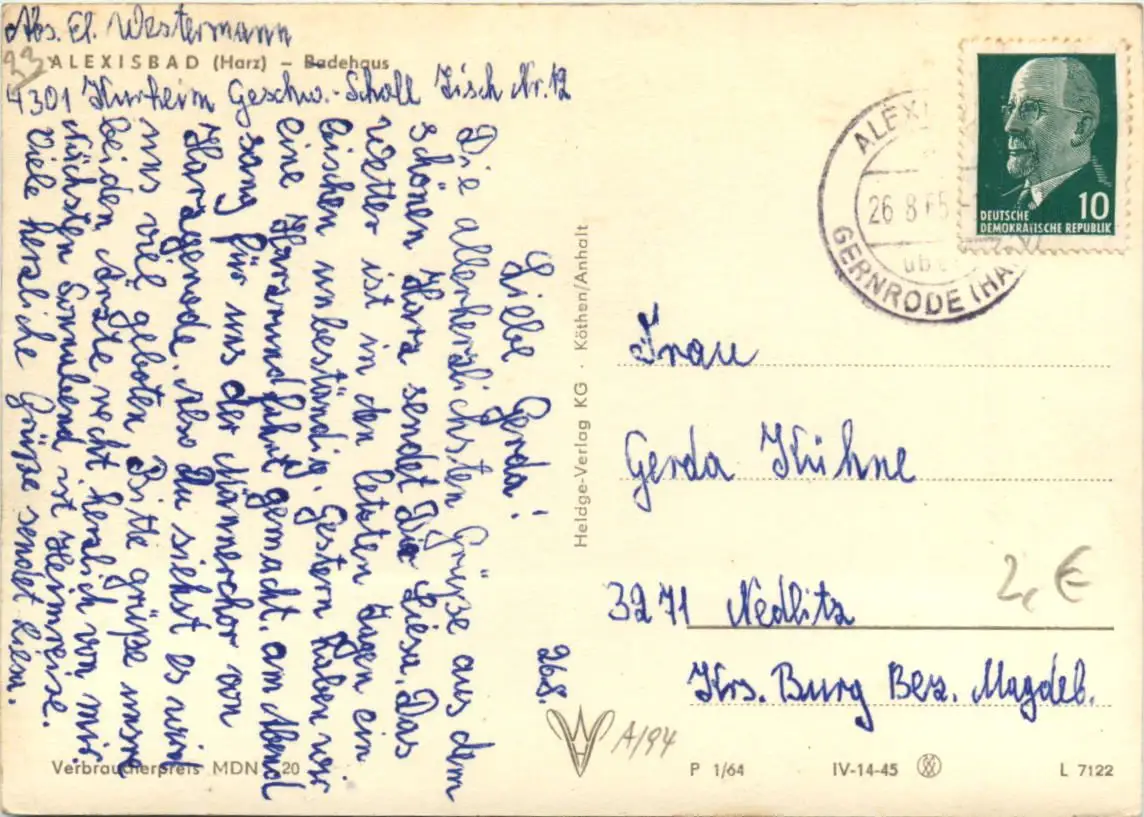 Abs. El. Westermann
33
ALEXISBAD (Harz) – Badehaus
4301 Kurheim Geschw.-Scholl Tisch Nr. 12
Liebe Gerda! 26.8.
Die allerherzlichsten Grüße aus dem
schönen Harz sendet Dir Liesa. Das
Wetter ist in den letzten Tagen ein
bischen unbeständig. Gestern haben wir
eine Harzrundfahrt gemacht, am Abend
sang für uns der Männerchor von
Harzgerode, also Du siehst es wird
uns viel geboten. Bitte grüße unsre
beiden Ärzte recht herzlich von mir.
Nächsten Sonnabend ist Heimreise.
Viele herzliche Grüße sendet Liesa.
Verbraucherpreis MDN 20
Heldge-Verlag KG · Köthen/Anhalt
A/94
ALEXI
26 8 65
üb
GERNRODE (HA
DEUTSCHE
DEMOKRATISCHE REPUBLIK
10
Frau
Gerda Kühne
3271 Nedlitz
Krs. Burg Bez. Magdeb.
2,€
P 1/64
IV-14-45
L 7122